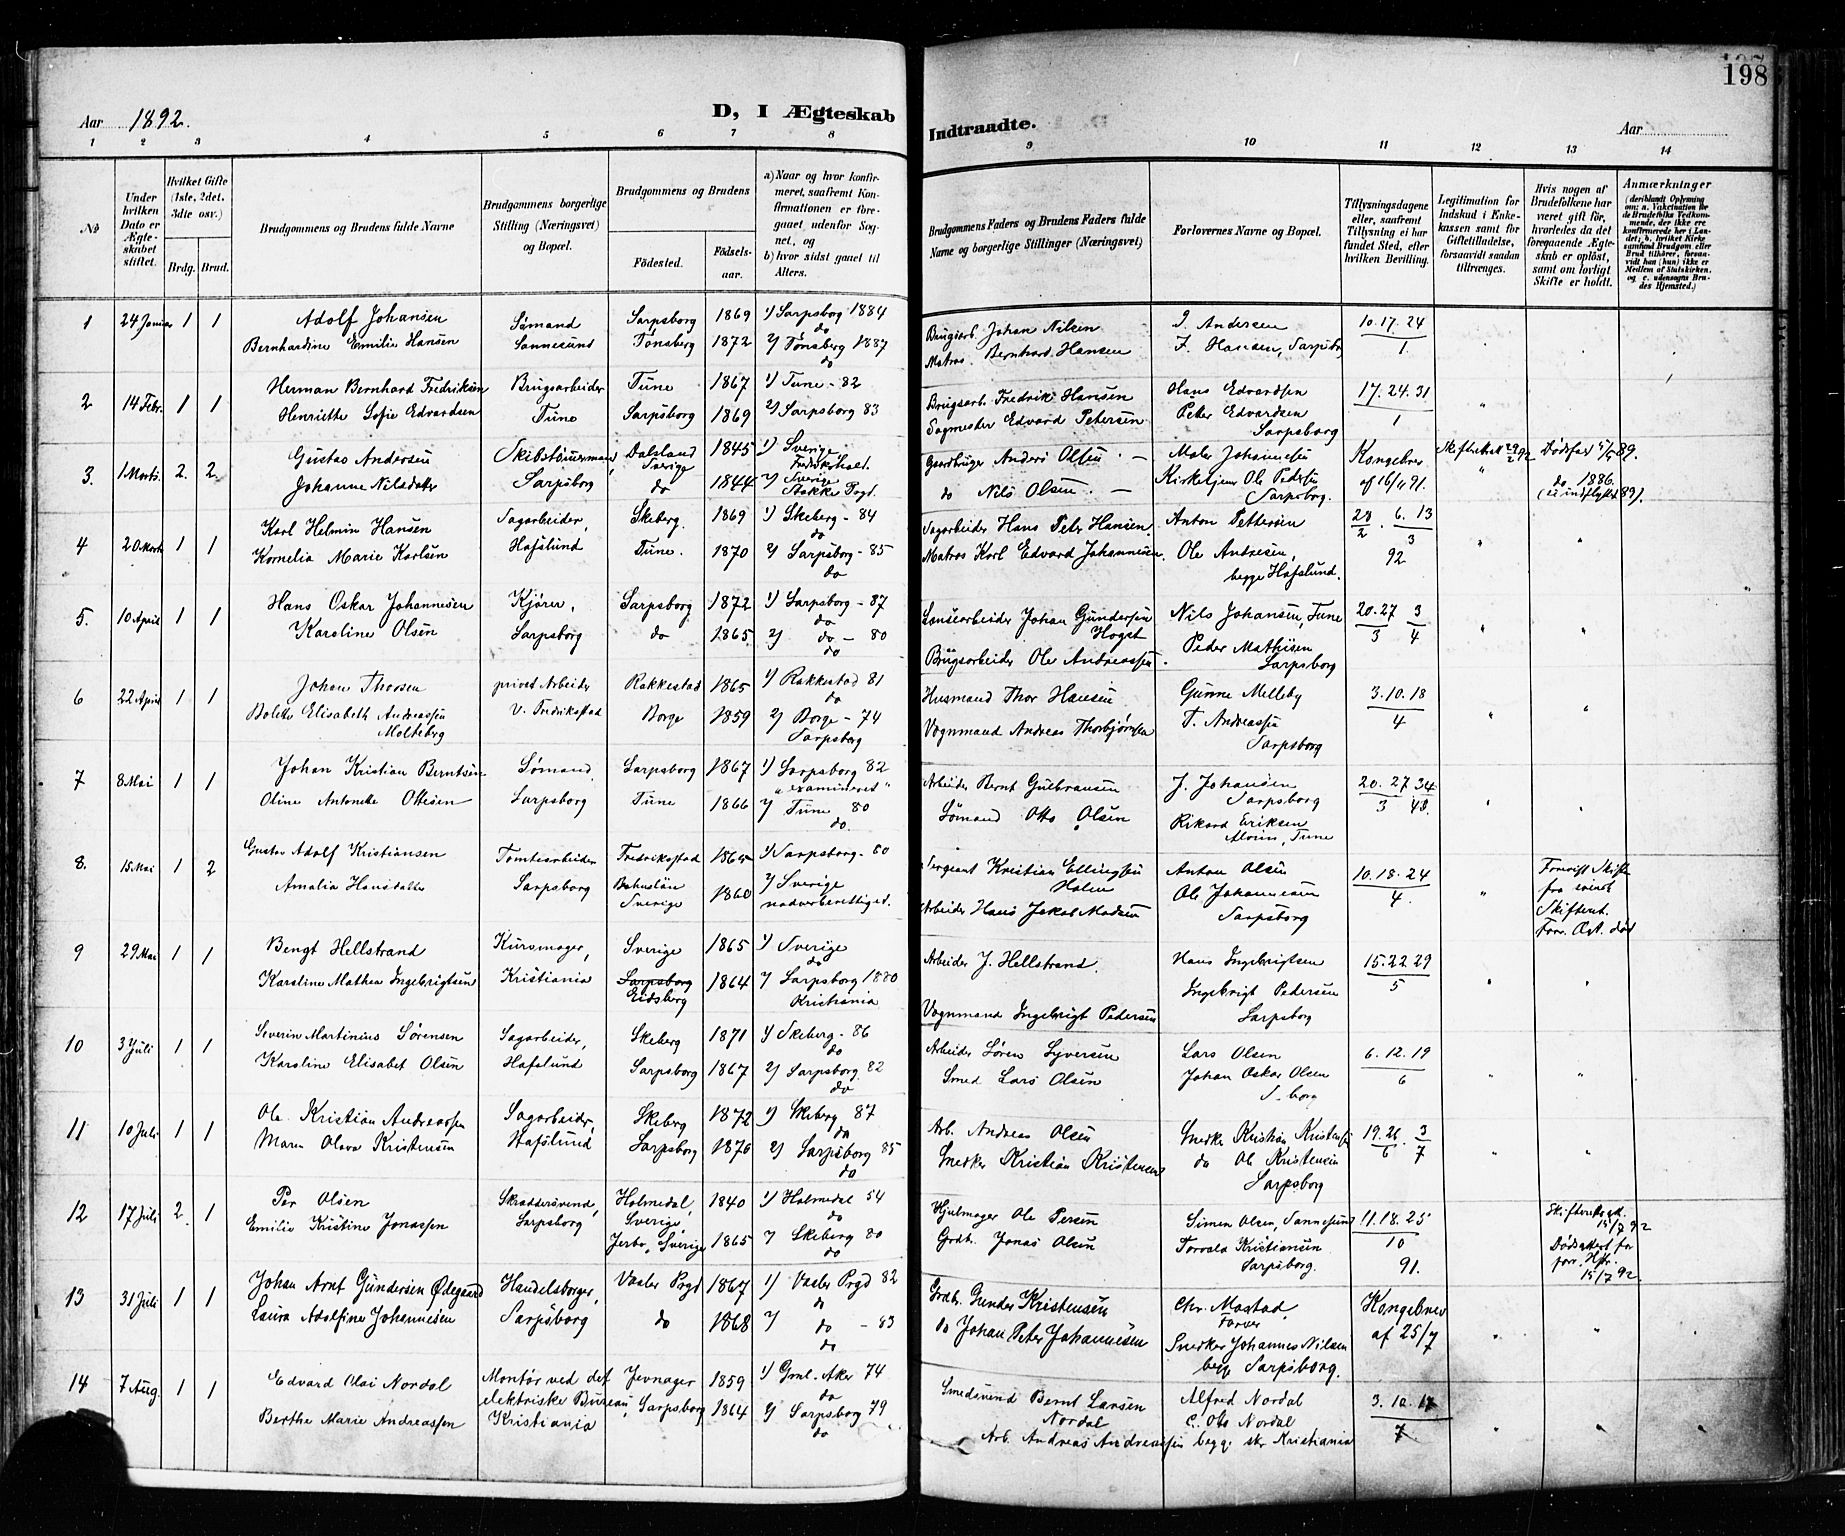 198
Aar 1892.
D, I Ægteskab
Indtraadte.
Aar
1 2 3 4 5 6 7 8
9 10 11 12 13 14
No
Under hvilken Dato er Ægteskabet stiftet.
Hvilket Gifte (1ste, 2det, 3die osv.)
Brdg. Brud.
Brudgommens og Brudens fulde Navne
Brudgommens borgerlige Stilling (Næringsvei) og Bopæl.
Brudgommens og Brudens
Fødested.
Fødselsaar.
a) Naar og hvor konfirmeret, saafremt Konfirmationen er foregaaet udenfor Sognet, og
b) hvor sidst gaaet til Alters.
Brudgommens Faders og Brudens Faders fulde Navne og borgerlige Stillinger (Næringsvei)
Forlovernes Navne og Bopæl.
Tillysningsdagene eller, saafremt Tillysning ei har fundet Sted, efter hvilken Bevilling.
Legitimation for Indskud i Enkekassen samt for Giftetilladelse, forsaavidt saadan tiltrænges.
Hvis nogen af Brudefolkene har været gift før, hvorledes da det foregaaende Ægteskab er opløst, samt om lovligt Skifte er holdt.
Anmærkninger
(deriblandt Oplysning om: a. Vaccination for de Brudefolks Vedkommende, der ikke ere konfirmerede her i Landet; b. hvilket Kirkesamfund Brudgom eller Brud tilhører, forsaavidt han (hun) ikke er Medlem af Statskirken, og c. udensogns Brudes Hjemsted.)
1 24 Januar 1 1 Adolf Johansen Sømand Sarpsborg 1869 1) Sarpsborg 1884 do
Bernhardine Emilie Hansen Sannesund Tønsberg 1872 2) Tønsberg 1887 do
Brugsarb. Johan Nilsen J. Andersen 10.17.24
Matros Bernhard Hansen F. Hansen, Sarpsb 1.
2 14 Febr. 1 1 Herman Bernhard Fredriksen Brugsarbeider Tune 1867 1) Tune - 82
Henriette Sofie Edvardsen Tune Sarpsborg 1869 2) Sarpsborg 83
Brugsarb. Fredrik Hansen Hans Edvardsen 17.24.31
Sagmester Edvard Petersen Peter Edvardsen Sarpsborg 1
3. 1 Marts. 2. 2. Gustav Andersen Skibstømmermand, Dalsland Sverige 1845 1) Sverige Fredrikshald.
Johanne Nilsdatter Sarpsborg do 1844 2) Sverige Prgd.
Gaardbruger Anders Olsen Maler Johannesen Kongebrev Dødsfald 89.
do Nils Olsen Kirketjener Ole Pedersen Sarpsborg. af 16/ 91. do 1886. (ei indflyttet 89).
4 20 Marts 1 1 Karl Helmin Hansen Sagarbeider, Skeberg. 1869 1) Skeberg - 84 do
Kornelia Marie Karlsen Hafslund Tune. 1870 2) Sarpsborg - 85 do
Sagarbeider Hans Petr Hansen. Anton Pettersen 28/2 . 6.13/3
Matros Karl Edvard Johannesen. Ole Andresen, begge Hafslund. 92
5. 10 April 1 1 Hans Oskar Johannesen Kjører, Sarpsborg 1872 1) Sarpsborg - 87 do
Karoline Olsen Sarpsborg do 1865 2) do - 80 do
Johan Gundersen Nils Johansen, Tune 20.27/3 3/4
Brugsarbeider Ole Andreassen Peder Mathisen Sarpsborg
6 22 April 1 1 Johan Thorsen privat Arbeider Rakkestad 1865 1) Rakkestad 81 do
Bolette Elisabeth Andreassen Molteberg v. Fredrikstad Borge 1859 2) Borge - 74 Sarpsborg
Husmand Thor Hansen Gunne Melleby 3.10.18
Vognmand Andreas Thorbjørnsen T. Andreassen Sarpsborg 4
7 8 Mai 1 1 Johan Kristian Berntsen Sømand, Sarpsborg 1867 1) Sarpsborg 82 "examineret"
Oline Antonette Ottesen Sarpsborg Tune 1866 2) Tune 80 do.
Arbeider Bernt Gulbransen J. Johansen Sarpsborg 20.27 34
Sømand Otto Olsen Rikard Eriksen Alvim, Tune 3
8. 15 Mai 1 2 Gustav Adolf Kristiansen Tomtearbeider Fredrikstad 1865 1) Sarpsborg - 80
Amalia Hansdatter Sarpsborg Bohuslän Sverige 1860 2) Sverige nadverberettiget.
Sergeant Kristian Ellingsen Holen Anton Olsen 10.18.24
Arbeider Hans Jakob Madsen Ole Johannesen Sarpsborg 4.
Skifteret. Forr. Ægt. død
9 29 Mai 1 1 Bengt Hellstrand Kursmager, Sverige 1865 1) Sverige do
Karoline Mathea Ingebrigtsen Kristiania Sarpsborg Eidsberg 1864 2) Sarpsborg 1880 Kristiania
Arbeider J. Hellstrand. Hans Ingebrigtsen 15.22.29
Vognmand Ingebrigt Pedersen Ingebrigt Pedersen Sarpsborg 5
10 3 Juli 1 1 Severin Martinius Sørensen Sagarbeider, Skeberg 1871 1) Skeberg - 86 do
Karoline Elisabet Olsen Hafslund Sarpsborg 1867 2) Sarpsborg 82 do
Arbeider Søren Syversen Lars Olsen 6.12.19
Smed Lars Olsen Johan Oskar Olsen S-borg 6
11 10 Juli 1 1 Ole Kristian Andreassen Sagarbeider, Skeberg 1872 1) Skeberg 87 do
Maren Olava Kristensen Hafslund Sarpsborg 1870 2) Sarpsborg 85 do
Arb. Andreas Olsen Snedker Kristian Kristensen 19.26/6 . 3/7
Snedker Kristian Kristensen do Ole Kristensen Sarpsborg
12 17 Juli 2. 1 Per Olsen Skræddersvend, Holmedal, Sverige, 1840 1) Holmedal 54 do
Emilie Kristine Jonassen Sarpsborg Jerbo, Sverige 1865 2) Skeberg 80 do
Hjulmager Ole Persen Simen Olsen, Sannesund 11.18.25
Grdb. Jonas Olsen Torvald Kristiansen Sarpsborg. 10 91.
Skifteretsatt. 15/7 92 Dødsattest for forr. Hstr. 15/7 92.
13 31 Juli 1 1 Johan Arnt Gundersen Ødegaard Handelsborger, Vaaler Prgd 1867 1) Vaaler Prgd 82 do
Laura Adolfine Johannesen Sarpsborg do 1868 2) do - 83 do
Grdb. Gunder Kristensen Chr. Mostad, Farver Kongebrev
do Johan Peter Johannesen Snedker Johannes Nilsen begge Sarpsborg. af 25/7
14 7 Aug 1 1 Edvard Olai Nordal Montør ved det elektriske Bureau, Jevnager 1859 1) Gml. Aker 74 do
Berthe Marie Andreassen Kristiania Sarpsborg 1864 2) Sarpsborg 79 do
Smedsvend Bernt Larsen Nordal Alfred Nordal 3.10.17
Arb. Andreas Andreassen C. Otto Nordal begge Kristiania 7